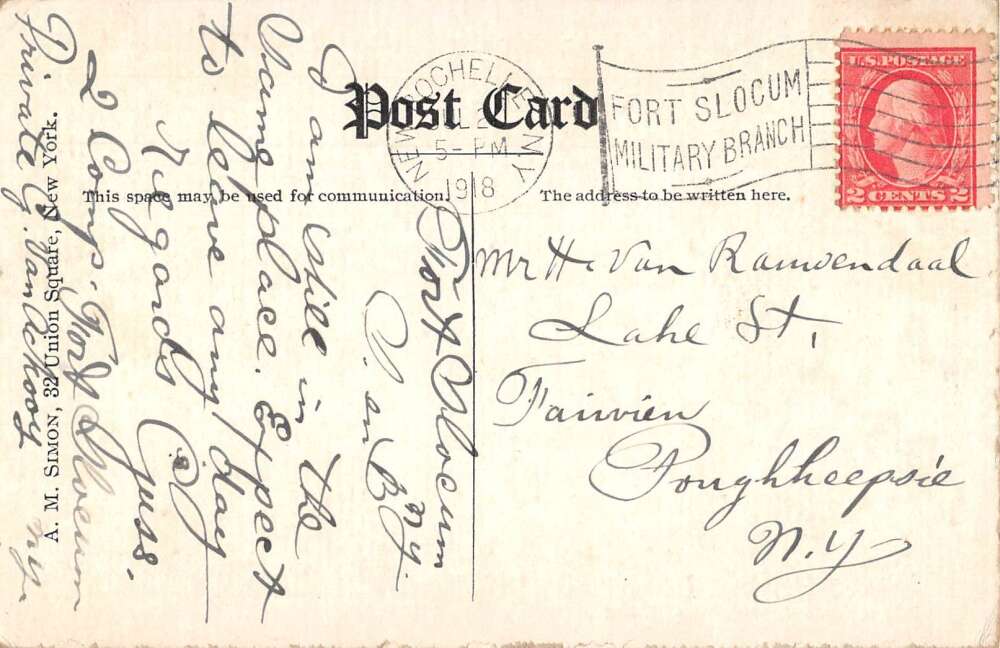 Post Card
NEW ROCHELLE N.Y.
5-PM
1918
FORT SLOCUM
MILITARY BRANCH
U.S. POSTAGE
2 CENTS 2
This space may be used for communication.
The address to be written here.
Fort Slocum
N.Y.
I am still in the
same place. Expect
to leave any day
Regards
Gus.
Private G. Van
2 Comp. Fort Slocum
NY.
Mr H. Van
Lake St.
Poughkeepsie
N.Y
A. M. SIMON, 32 Union Square, New York.